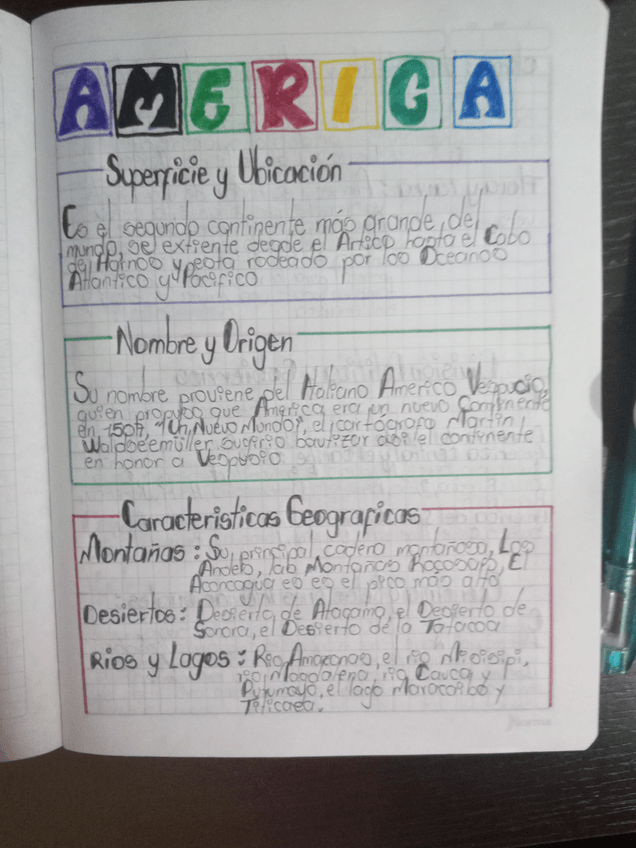 AMERICA
Superficie y Ubicación
Es el segundo continente más grande, del
mundo, se extiente desde el Artico hasta el Cabo
de Hornos y esta rodeado por los Oceanos
Atlantico y Pacifico
Nombre y Origen
Su nombre proviene del Italiano Americo Vespucio,
quien propuso que America era un nuevo Continente
en 1507, "Un Nuevo Mundo", el cartografo Martin
Waldseemüller sugirio bautizar asi el continente
en honor a Vespucio
Caracteristicas Geograficas
Montañas: Su principal cadena montañosa, Los
Andes, las Montañas Rocosas, El
Aconcagua es es el pico más alto
Desiertos: Desierto de Atacama, el Desierto de
Sonora, el Desierto de la Tatacoa
Rios y Lagos: Rio Amazonas, el rio Misisipi,
rio Magdalena, rio Cauca y
Putumayo, el lago Maracaibo y
Titicaca.
Norma